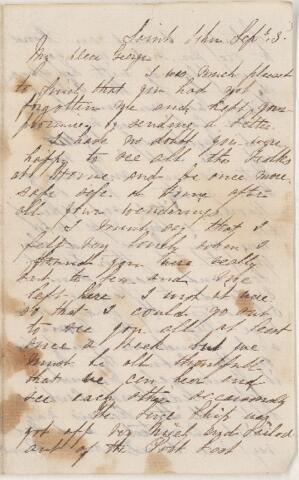 Saint John Sept 3.
My Dear George
I was much pleased
to find that you had not
forgotten me and kept your
promise by sending a letter.
I have no doubt you were
happy to see all the Folks
at Home and be once more
safe at Home after
all your wanderings
I must say that I
felt very lonely when I
found you were really
and
left here. I wish it were
so that I could go out
to see you all at least
once a week but we
must be all thankful
that we can hear and
see each other occasionally
The Ship was
got off
out of the Port